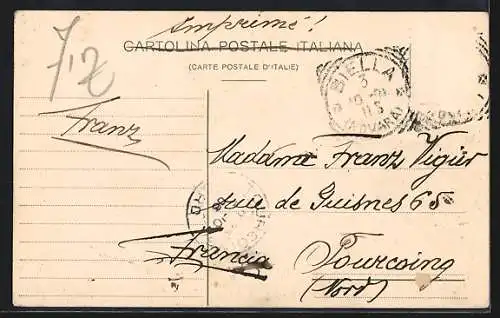 Imprimé!
7,2
CARTOLINA POSTALE ITALIANA
(CARTE POSTALE D'ITALIE)
BIELLA
(NOVARA)
Franz
Madame Franz Vigür
rue de Guisnes 65
Francia
Tourcoing
(Nord)